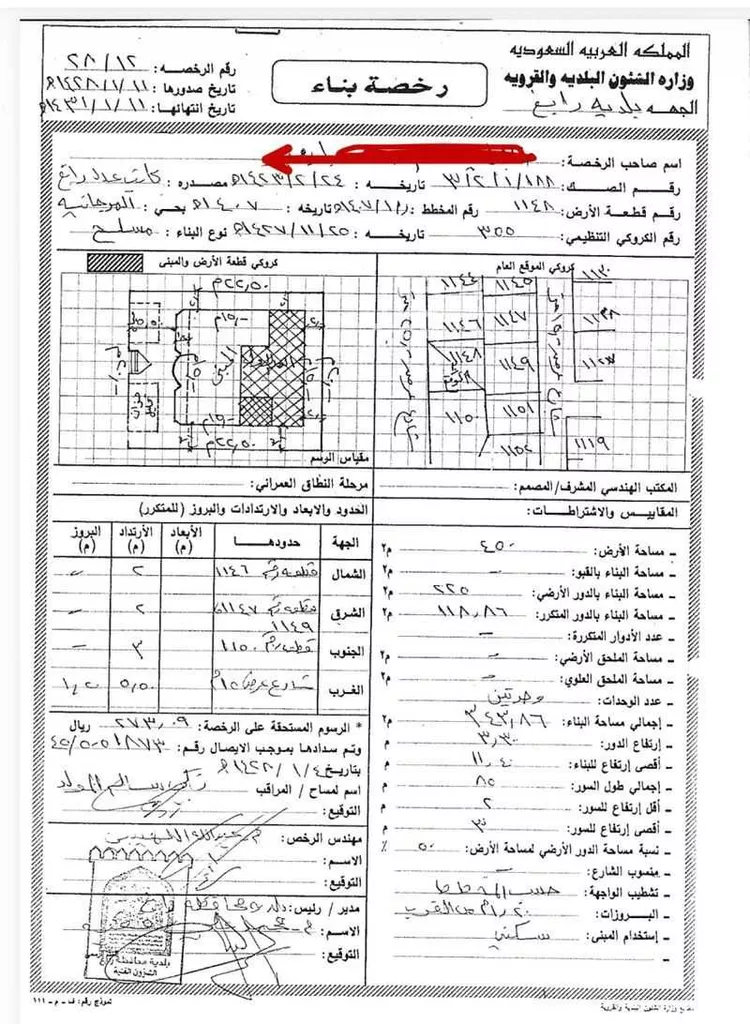 المملكه العربيه السعوديه
وزاره الشئون البلديه والقرويه
الجهه بلديه رابغ
رخصة بناء
رقم الرخصه: ٢٨/١٢
تاريخ صدورها: ١٤٢٨/١/١١هـ
تاريخ انتهائها: ١٤٣١/١/١١هـ
اسم صاحب الرخصة:
رقـم الصـك: ٣/٢/١/١٨٨ تاريخه: ١٤٢٣/٢/٢٤هـ مصدره: كاتب عدل رابغ
رقم قطعة الأرض: ١١٤٨ رقم المخطط: تاريخه: ١٤٠٧هـ بحي: المرجانيه
رقم الكروكي التنظيمي: ٣٥٥ تاريخه: ١٤٢٧/١١/٢٥هـ نوع البناء: مسلح
كروكي الموقع العام
١١٤٤ ١١٤٥ ١١٣٠
١١٤٦ ١١٤٧
١١٤٨ ١١٤٩
الموقع
١١٥٠ ١١٥١
١١٥٢ ١١١٩
كروكي قطعة الأرض والمبنى
٢٢,٥٠م
١٥,٠م
المبنى
١٥,٠م
٢٢,٥٠م
مقياس الرسم
المكتب الهندسي المشرف/المصمم:
المقاييس والاشتراطات:
ـ مساحة الأرض: ٤٥٠ م٢
ـ مساحة البناء بالقبو: - م٢
ـ مساحة البناء بالدور الأرضي: ٢٢٥ م٢
ـ مساحة البناء بالدور المتكرر: ١١٨,٨٦ م٢
ـ عدد الأدوار المتكررة: -
ـ مساحة الملحق الأرضي: - م٢
ـ مساحة الملحق العلوي: - م٢
ـ عدد الوحدات: وحدتين
ـ إجمالي مساحة البناء: ٣٤٣,٨٦ م٢
ـ إرتفاع الدور: ٣,٣٠ م
ـ أقصى إرتفاع للبناء: ١١,٤٠ م
ـ إجمالي طول السور: ٨٥ م
ـ أقل إرتفاع للسور: ٢ م
ـ أقصى إرتفاع للسور: ٣ م
ـ نسبة مساحة الدور الأرضي لمساحة الأرض: ٥٠ ٪
ـ منسوب الشارع: -
ـ تشطيب الواجهة: حسب المخطط
ـ البـروزات: من الغرب
ـ إستخدام المبنى: سكني
مرحلة النطاق العمراني:
الحدود والابعاد والارتدادات والبروز (للمتكرر):
الجهة حدودهـا الأبعاد (م) الأرتداد (م) البروز (م)
الشمال قطعه رقم ١١٤٦ ٢ -
الشرق قطعه رقم ١١٤٧ ٢ -
١١٤٩
الجنوب قطعه رقم ١١٥٠ ٣ -
الغرب شارع عرض ١٥م ٥,٥٠ ١,٢
* الرسوم المستحقة على الرخصة: ٢٧٣,٠٩ ريال
وتم سدادها بموجب الايصال رقم:
بتاريخ: ١٤٢٨/١/٤هـ
اسم لمساح / المراقب
التوقيع:
مهندس الرخص:
الاسـم:
التوقيع:
مدير / رئيس:
الاسـم:
التوقيع:
بلدية محافظة رابغ
الشؤون الفنية
نموذج رقم: ف ـ م ـ ١١١